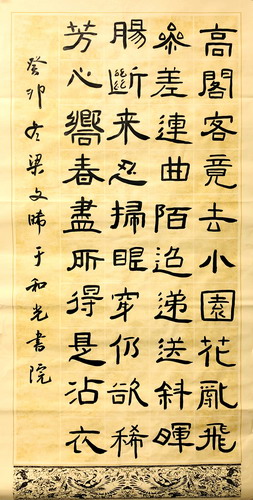 高閣客竟去小園花亂飛
參差連曲陌迢遞送斜暉
腸斷未忍掃眼穿仍欲稀
芳心嚮春盡所得是沾衣
癸卯冬梁文晞于和光書院